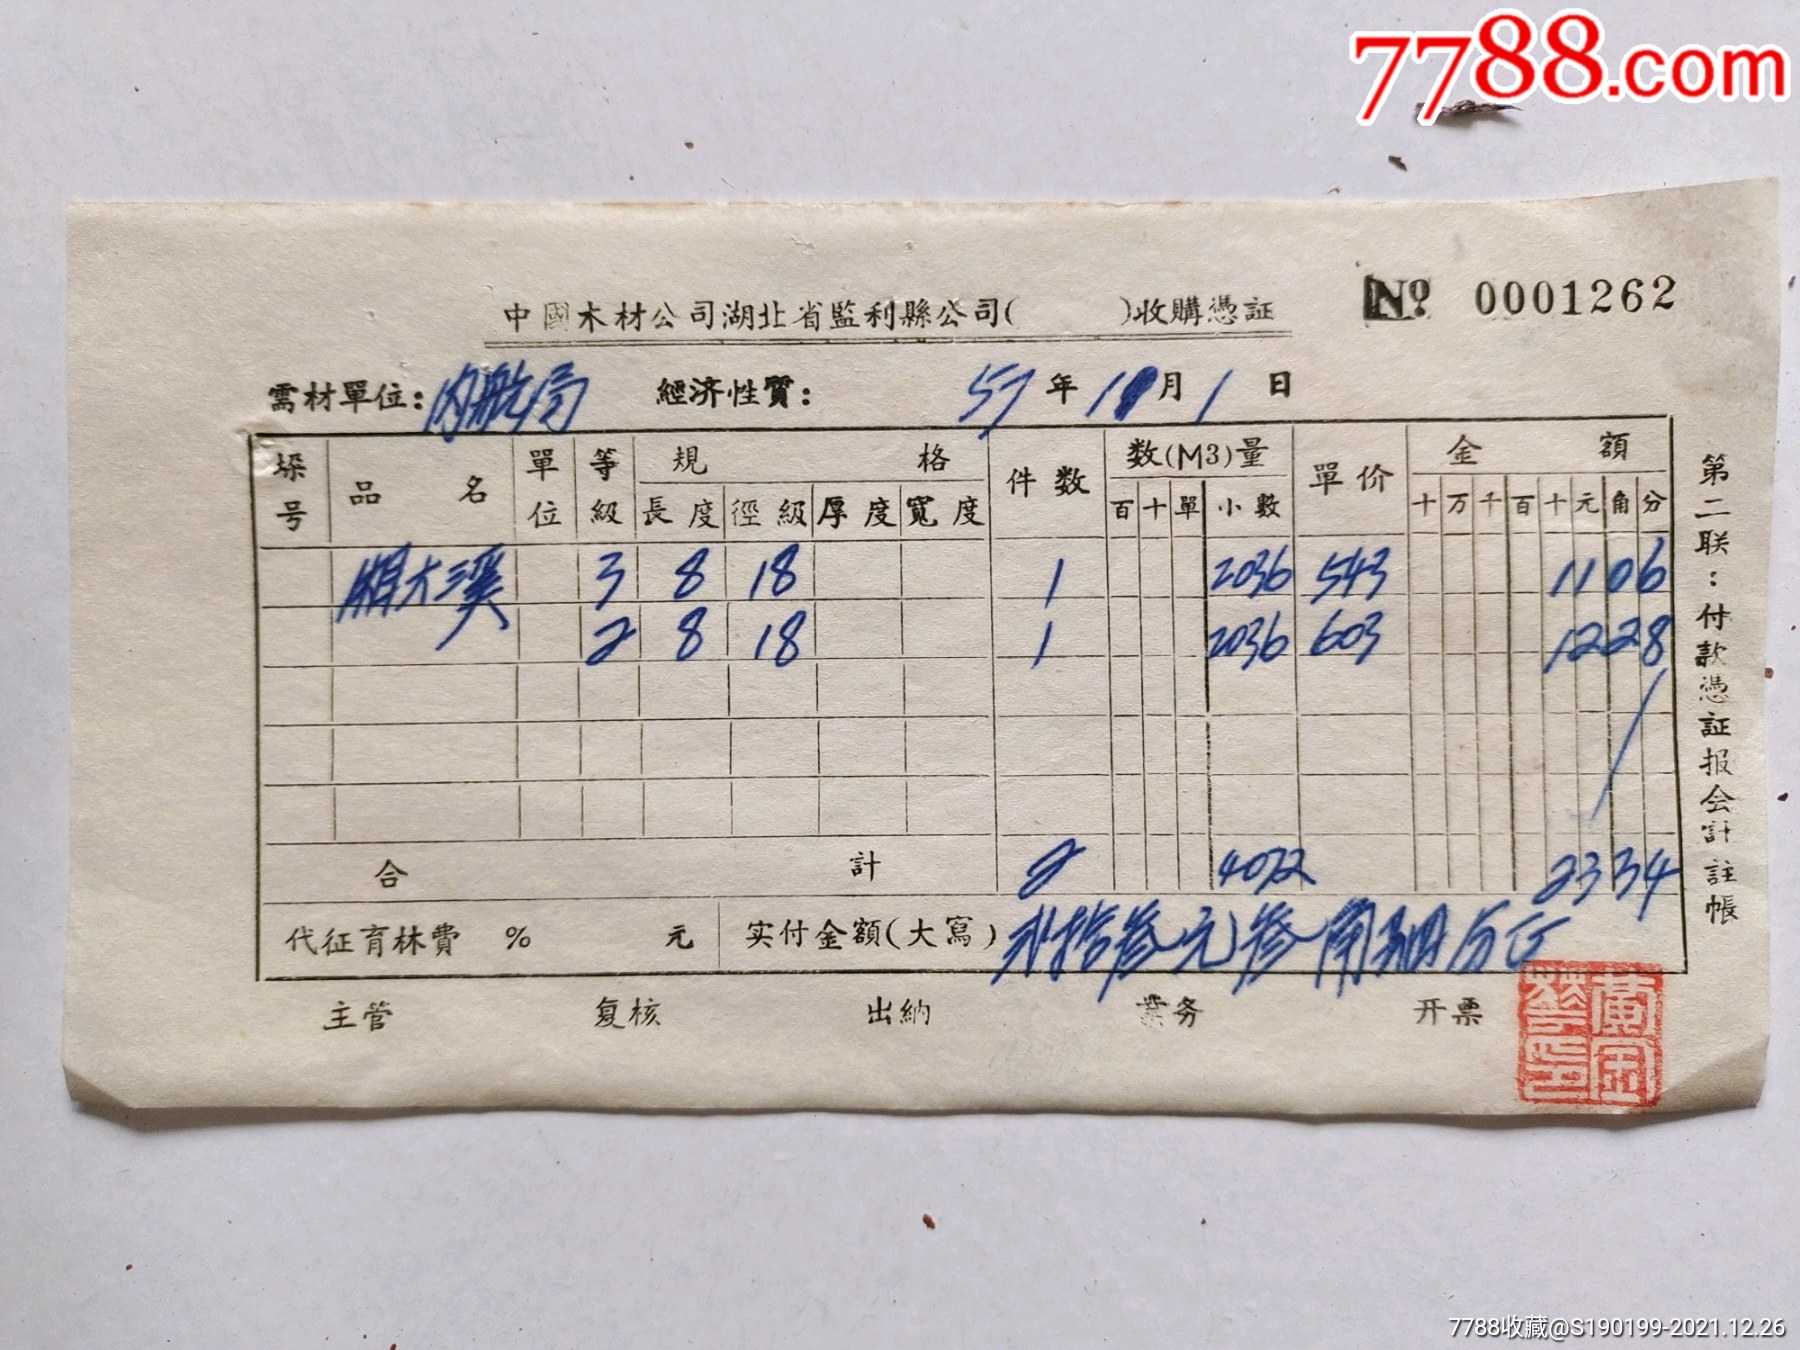 7788.com
中國木材公司湖北省監利縣公司( )收購憑証
№ 0001262
需材單位: 内航局 經济性質: 57年 10月 1日
垛号 品名 單位 等級 規格 件数 数(M3)量 單价 金額
長度 徑級 厚度 寬度 百 十 單 小數 十 万 千 百 十 元 角 分
3 8 18 1 2036 543 1106
2 8 18 1 2036 603 1228
合計 2 4072 2334
代征育林費 % 元 实付金額(大寫) 弍拾叁元叁角肆分正
主管 复核 出納 業务 开票
黄金華印
第二联:付款憑証报会計註帳
7788收藏@S190199-2021.12.26